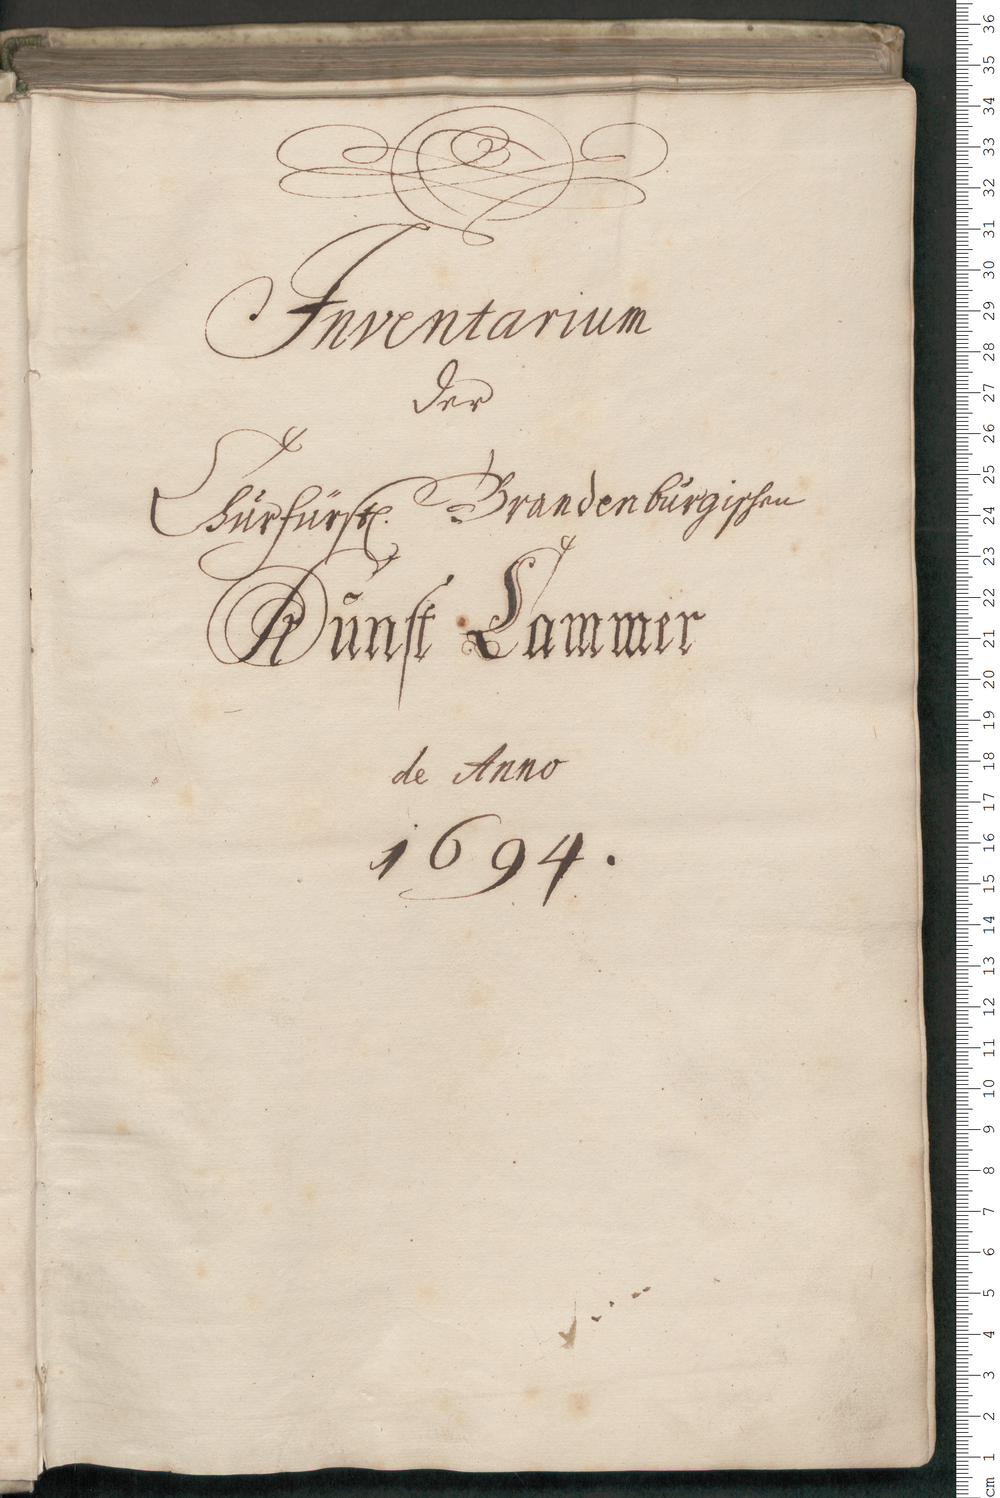 Inventarium
der
Churfürstl. Brandenburgischen
Kunst Cammer
de Anno
1694.
36
35
34
33
32
31
30
29
28
27
26
25
24
23
22
21
20
19
18
17
16
15
14
13
12
11
10
9
8
7
6
5
4
3
2
1
cm